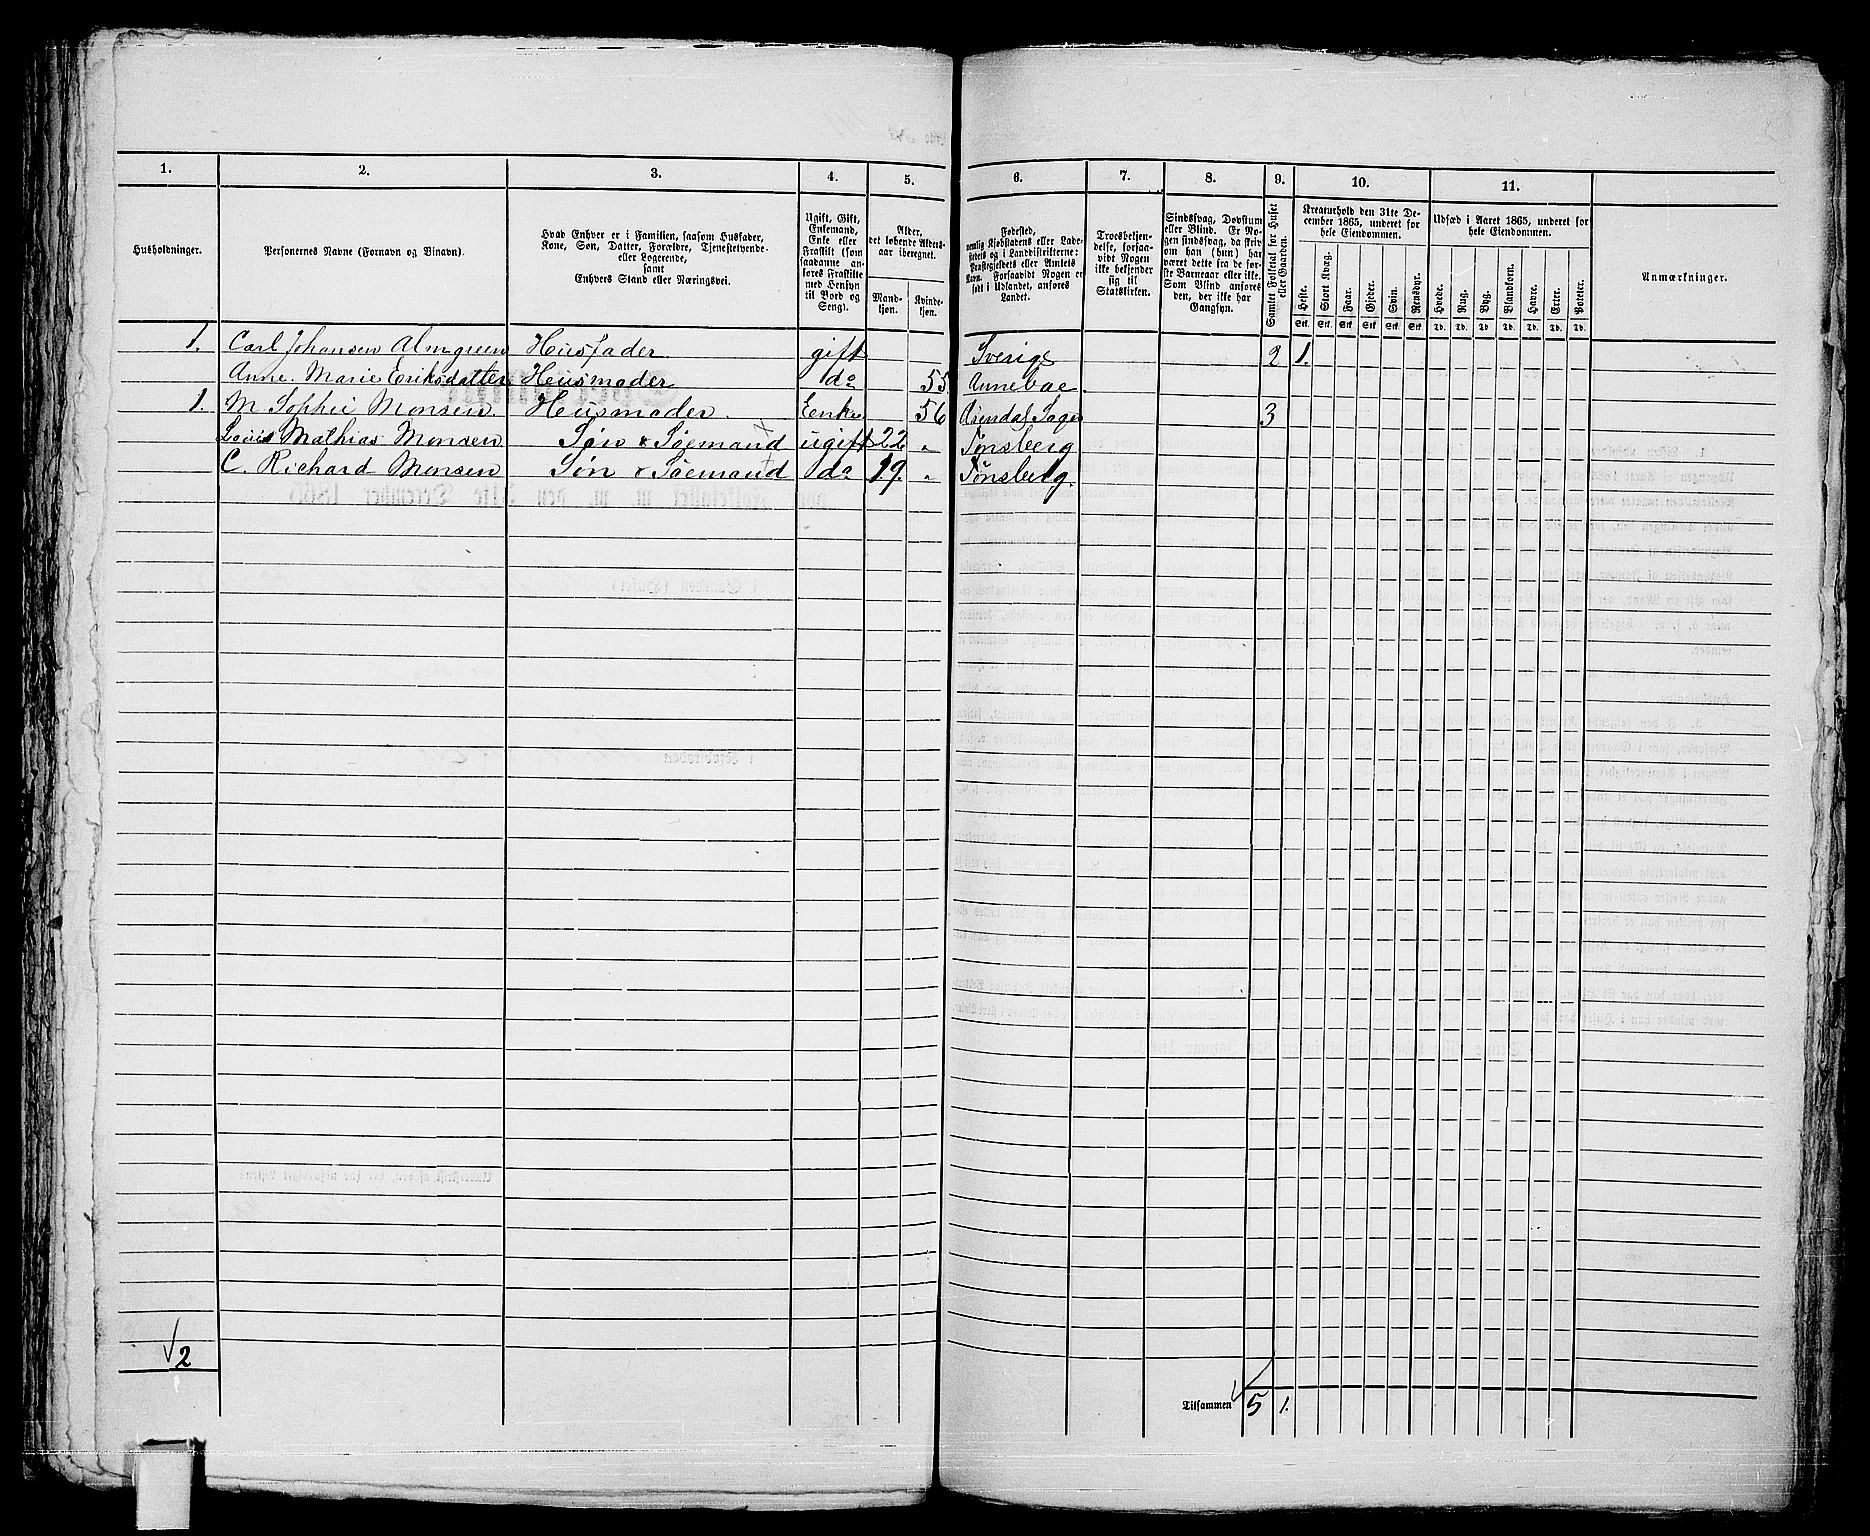 1. 2. 3. 4. 5. 6. 7. 8. 9. 10. 11.
Husholdninger.
Personernes Navne (Fornavn og Binavn).
Hvad Enhver er i Familien, saasom Husfader,
Kone, Søn, Datter, Forældre, Tjenestetyende
eller Logerende,
samt
Enhvers Stand eller Næringsvei.
Ugift, Gift,
Enkemand,
Enke eller
Fraskilt (som
saadanne an-
føres Fraskilte
med Hensyn
til Bord og
Seng).
Alder,
det løbende Alders-
aar iberegnet.
Mand-
kjøn.
Kvinde-
kjøn.
Fødested,
nemlig Kjøbstadens eller Lade-
stedets og i Landdistrikterne:
Præstegjeldets eller Amtets
Navn. Forsaavidt Nogen er
født i Udlandet, anføres
Landet.
Troesbekjen-
delse, forsaa-
vidt Nogen
ikke bekjender
sig til
Statskirken.
Sindssvag, Døvstum
eller Blind. Er No-
gen sindssvag, da skriv
om han (hun) har
været dette fra de før-
ste Barneaar eller ikke.
Som Blind anføres
den, der ikke har
Gangsyn.
Samlet Folketal for Huset
eller Gaarden.
Kreaturhold den 31te De-
cember 1865, underet for
hele Eiendommen.
Heste. Stort Kvæg. Faar. Gjeder. Svin. Rensdyr.
Stk. Stk. Stk. Stk. Stk. Stk.
Udsæd i Aaret 1865, underet for
hele Eiendommen.
Hvede. Rug. Byg. Blandkorn. Havre. Erter. Poteter.
Td. Td. Td. Td. Td. Td. Td.
Anmærkninger.
1. Carl Johansen Almgreen Husfader gift Sverige 2 1.
Anne Marie Eriksdatter Husmoder do 55 Annebae
1. M Sophie Monsen. Husmoder. Eenke 56 3
Louis Mathias Monsen Søn & Søemand ugift 22 „ Tønsberg
C. Richard Monsen Søn & Søemand do 19. „ Tønsberg.
2
Tilsammen 5 1.